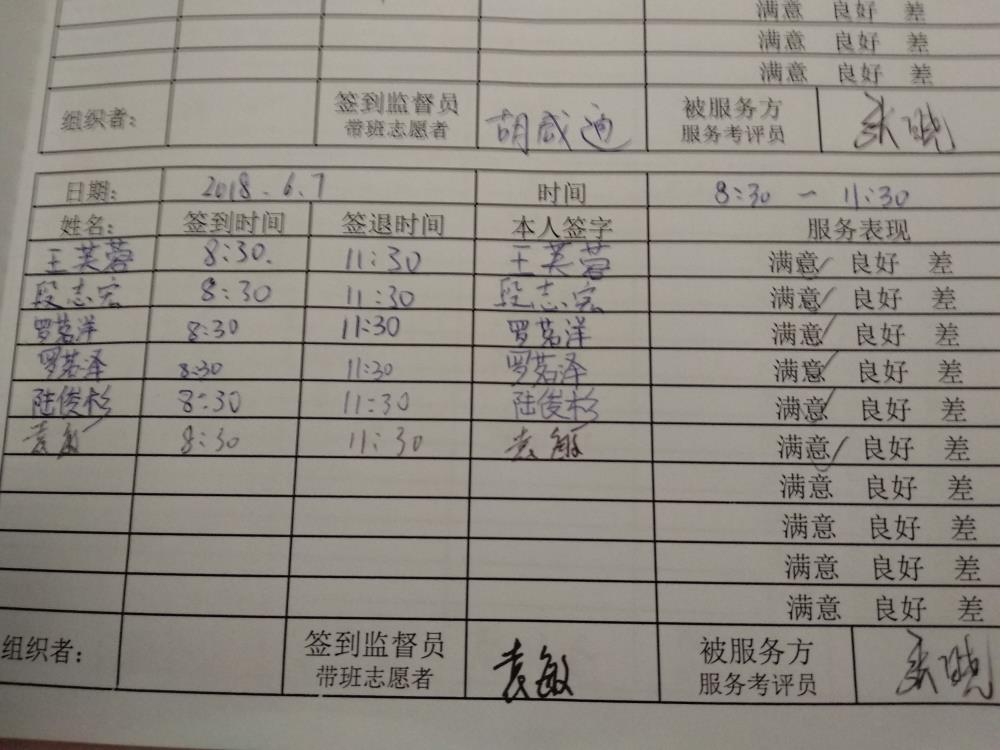 满意 良好 差
满意 良好 差
满意 良好 差
组织者： 签到监督员 带班志愿者 胡威迪 被服务方 服务考评员 张晓
日期： 2018.6.7 时间 8:30 — 11:30
姓名： 签到时间 签退时间 本人签字 服务表现
王芙蓉 8:30. 11:30 王芙蓉 满意 良好 差
段志宏 8:30 11:30 段志宏 满意 良好 差
罗茗洋 8:30 11:30 罗茗洋 满意 良好 差
罗茗泽 8:30 11:30 罗茗泽 满意 良好 差
陆俊杉 8:30 11:30 陆俊杉 满意 良好 差
袁敏 8:30 11:30 袁敏 满意 良好 差
满意 良好 差
满意 良好 差
满意 良好 差
满意 良好 差
组织者： 签到监督员 带班志愿者 袁敏 被服务方 服务考评员 张晓